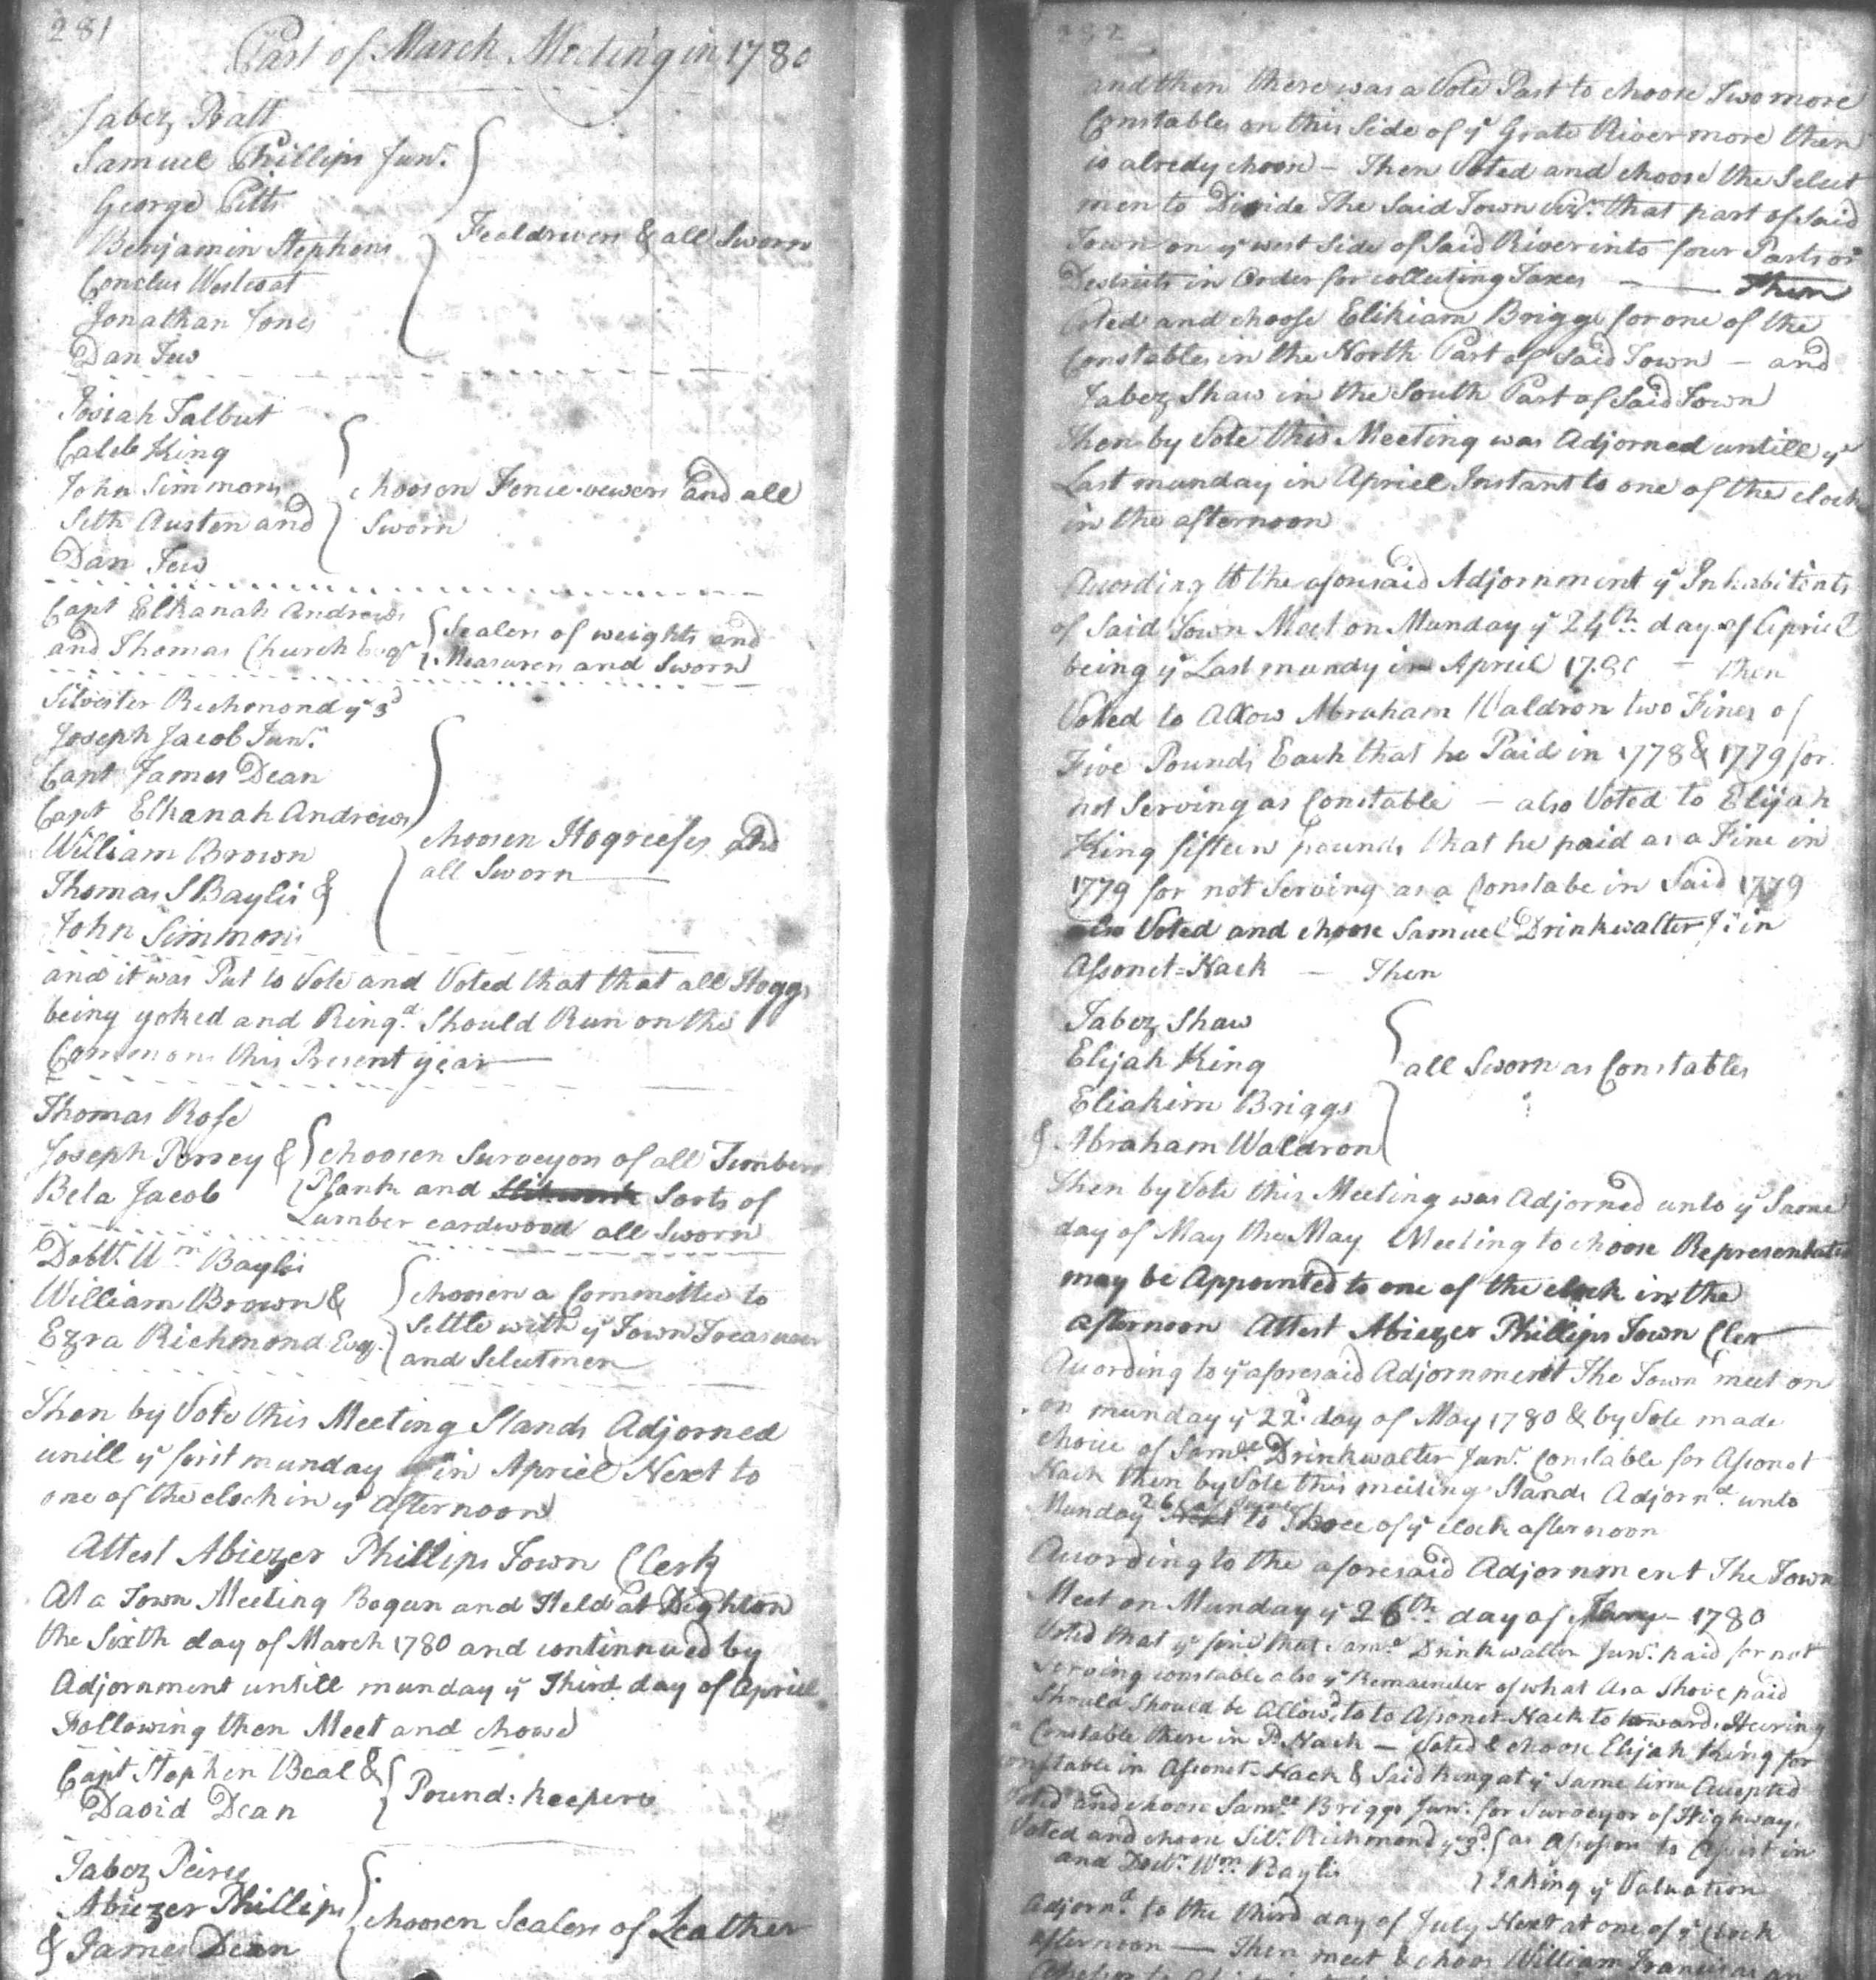 281
Part of March Meeting in 1780
Jabez Pratt
Samuel Phillips Junr.
George Pitts
Benjamin Stephens
Westcoat
Jonathan Jones
Dan Few
Fealdrivers & all Sworn
Josiah Talbut
Caleb King
John Simmons
Seth Austen and
Dan Few
choosen Fence-vewers and all
Sworn
Capt Elkanah Andrews
and Thomas Church Esqr
Sealers of weights and
Measurers and Sworn
Silvester Richmond ye 3d
Joseph Jacob Junr.
Capt James Dean
Capt Elkanah Andrews
William Brown
Thomas S Baylis &
John Simmons
choosen Hogreefes and
all Sworn
and it was Put to Vote and Voted that that all Hoggs
being yoked and Ringd. Should Run on the
Commons this Present year
Thomas Rose
Joseph Pervey &
Bela Jacob
choosen Surveyors of all Timber
Plank and Sorts of
Lumber cardwood all Sworn
Doctr. Wm Baylis
William Brown &
Ezra Richmond Esqr.
choosen a Committee to
Settle with ye Town Treasurer
and Selectmen
Then by Vote this Meeting Stands Adjorned
untill ye first munday in Apriel Next to
one of the clock in ye afternoon
Attest Abiezer Phillips Town Clerk
At a Town Meeting Begun and Held at Dighton
the Sixth day of March 1780 and continnued by
Adjornment untill munday ye Third day of Apriel
Following then Meet and chose
Capt Stephen Beal &
David Dean
Pound-keepers
Jabez Peirce
Abiezer Phillips
& James Dean
choosen Sealers of Leather
282
and then there was a Vote Past to choose Two more
Constables on this Side of ye Grate River more then
is alredy choose - Then Voted and choose the Select
men to Divide The Said Town viz. that part of Said
Town on ye west Side of Said River into four Parts or
Destricts in Order for collecting Taxes - Then
Voted and choose Elikiam Briggs for one of the
Constables in the North Part of Said Town - and
Jabez Shaw in the South Part of Said Town
Then by Vote this Meeting was Adjorned untill ye
Last munday in Apriel Instant to one of the clock
in the afternoon
Acording to the aforesaid Adjornment ye Inhabitents
of Said Town Meet on Munday ye 24th. day of Apriel
being ye Last mundy in Apriel 1780 - Then
Voted to Allow Abraham Waldron two Fines of
Five Pounds Each that he Paid in 1778 & 1779 for
not Serving as Constable - also Voted to Elijah
King fifteen pounds that he paid as a Fine in
1779 for not Serving as a Constabe in Said 1779
also Voted and choose Samuel Drinkwalter Jr. in
Assonet=Nack - Then
Jabez Shaw
Elijah King
Eliakim Briggs
& Abraham Waldron
all Sworn as Constables
Then by Vote this Meeting was Adjorned unto ye Same
day of May the May Meeting to choose Representative
may be Appointed to one of the clock in the
afternoon Attest Abiezer Phillips Town Cler
Acording to ye aforesaid Adjornment The Town meet on
on munday ye 22d. day of May 1780 & by Vote made
choice of Samll Drinkwalter Junr. Constable for Assonet
Nack then by Vote this meeting Stands Adjornd. unto
Munday 26 of to Three of ye clock afternoon
Acording to the aforesaid Adjornment The Town
Meet on Munday ye 26th. day of - 1780
Voted that ye fine that Samll Drinkwalter Junr. paid for not
Serving constable also ye Remainder of what Asa Shove paid
Should Should be Allowd. to to Assonet-Nack to toward Heiring
a Constable there in Sd. Nack - Voted & choose Elijah King for
constable in Assonet-Nack & Said King at ye Same time Accepted
Voted and choose Samll Briggs Junr. for Surveyor of Highway.
Voted and choose Silr. Richmond ye 3d
and Doctr. Wm. Baylis
as Assessors to Assist in
taking ye Valuation
Adjornd to the third day of July Next at one of ye Clock
afternoon - Then meet & choos William Francis as an